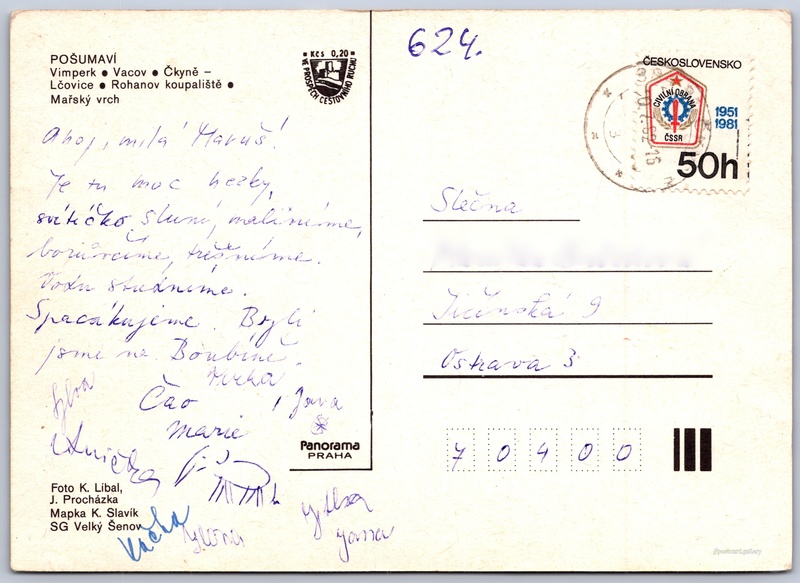 POŠUMAVÍ
Vimperk ● Vacov ● Čkyně –
Lčovice ● Rohanov koupaliště ●
Mařský vrch
Kčs 0,20
VE PROSPĚCH CESTOVNÍHO RUCHU
624.
ČESKOSLOVENSKO
CIVILNÍ OBRANA
ČSSR
1951
1981
50h
Ahoj, milá Maruš!
Je tu moc hezky,
svítíčko sluní, maliníme,
borůvčíme, třešníme.
Vodu studníme.
Spacákujeme. Byli
jsme na Boubíně.
Čao
Jana
Marie
Slečna
Jičínská 9
Ostrava 3
70400
Panorama
PRAHA
Foto K. Libal,
J. Procházka
Mapka K. Slavík
SG Velký Šenov
Káčka
Jana
@postcard.gallery